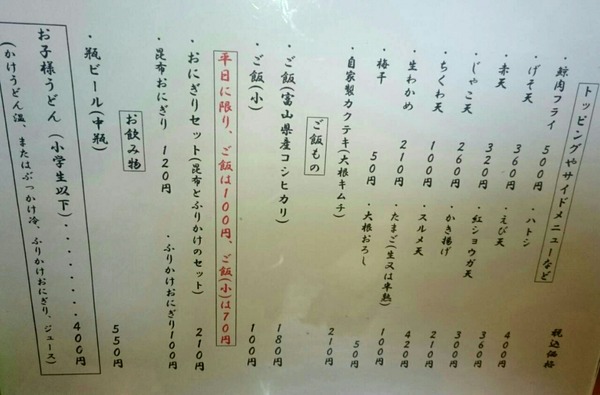 トッピングやサイドメニューなど
税込価格
・鯨肉フライ 500円 ・ハトシ 400円
・げそ天 360円 ・えび天 360円
・赤天 320円 ・紅ショウガ天 300円
・じゃこ天 260円 ・かき揚げ 210円
・ちくわ天 100円 ・スルメ天 420円
・生わかめ 210円 ・たまご(生又は半熟) 100円
・梅干 50円 ・大根おろし 50円
・自家製カクテキ(大根キムチ) 210円
ご飯もの
・ご飯(富山県産コシヒカリ) 180円
・ご飯(小) 100円
平日に限り、ご飯は100円、ご飯(小)は70円
・おにぎりセット(昆布とふりかけのセット) 210円
・昆布おにぎり 120円 ・ふりかけおにぎり100円
お飲み物
・瓶ビール(中瓶) 550円
お子様うどん(小学生以下)・・・・・・・・400円
(かけうどん温、またはぶっかけ冷、ふりかけおにぎり、ジュース)